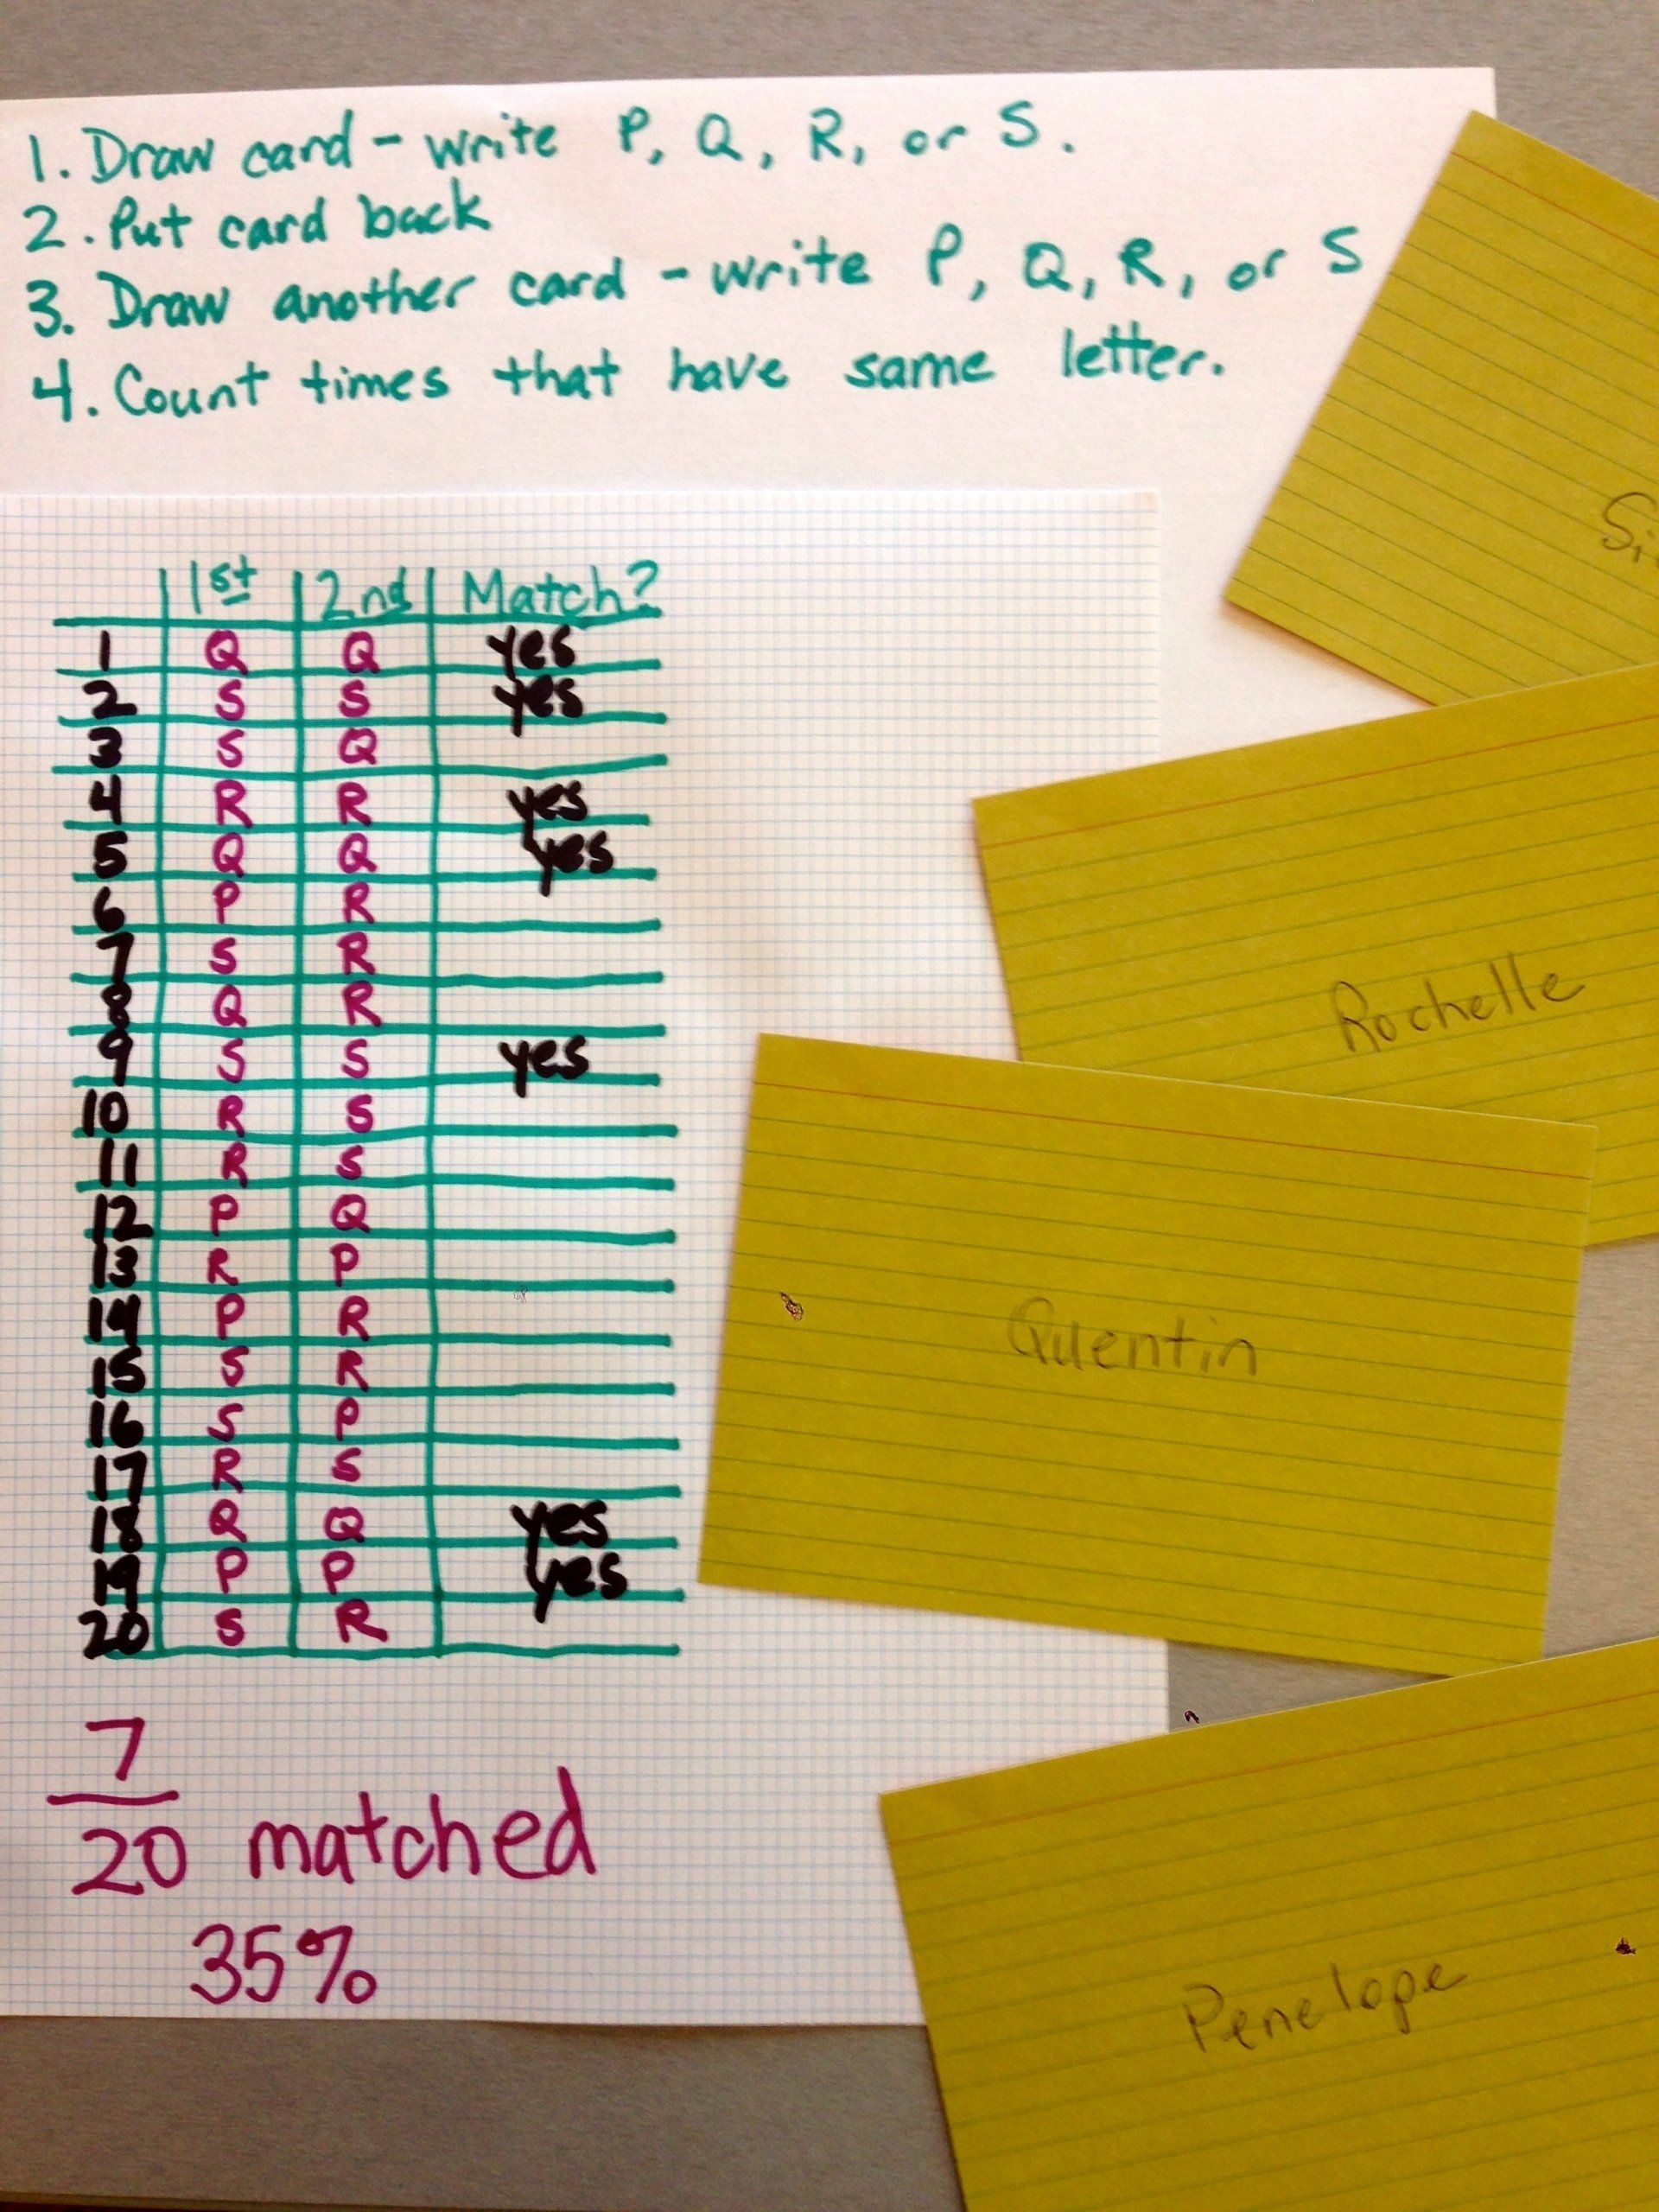 1. Draw card - write P, Q, R, or S.
2. Put card back
3. Draw another card - write P, Q, R, or S
4. Count times that have same letter.
1st 2nd Match?
1 Q Q yes
2 S S yes
3 S Q
4 R R yes
5 Q Q yes
6 P R
7 S R
8 Q R
9 S S yes
10 R S
11 R S
12 P Q
13 R P
14 P R
15 S R
16 S P
17 R S
18 Q Q yes
19 P P yes
20 S R
7
20 matched
35%
Rochelle
Quentin
Penelope